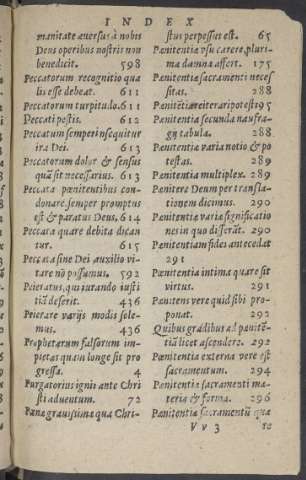 INDEX
manitate auersus à nobis
Deus operibus nostris non
benedicit. 598
Peccatorum recognitio qua
lis esse debeat. 611
Peccatorum turpitudo. 611
Peccati pestis. 612
Peccatum semper insequitur
ira Dei. 613
Peccatorum dolor & sensus
quã sit necessarius. 613
Peccata pœnitentibus con-
donare, semper promptus
est & paratus Deus. 614
Peccata quare debita dican
tur. 615
Peccata sine Dei auxilio vi-
tare nõ possumus. 592
Peieratus, qui iurando iusti
tiã deserit. 436
Peierare varijs modis sole-
mus. 436
Prophetarum falsorum im-
pietas quàm longè sit pro
gressa. 4
Purgatorius ignis ante Chri
sti aduentum. 72
Pœnæ grauissimæ quæ Chri-
stus perpessus est. 65
Pœnitentiæ vsu carere, pluri-
ma damna affert. 175
Pœnitentia sacramenti neces
sitas. 288
Pœnitẽtiã reiterari potest 295
Pœnitentia secunda naufra-
gij tabula. 288
Pœnitentiæ varia notio & po
testas. 289
Pœnitentia multiplex. 289
Pœnitere Deum per transla-
tionem dicimus. 290
Pœnitentiæ variæ significatio
nes in quo differãt. 290
Pœnitentiam fides antecedat
291
Pœnitentia intima quare sit
virtus. 291
Pœnitens vere quid sibi pro-
ponat. 292
Quibus gradibus ad pœnitẽ-
tiã licet ascendere. 292
Pœnitentia externa vere est
sacramentum. 294
Pœnitentiæ sacramenti ma-
teria & forma. 296
Pœnitentiæ sacramentũ quo
Vv 3